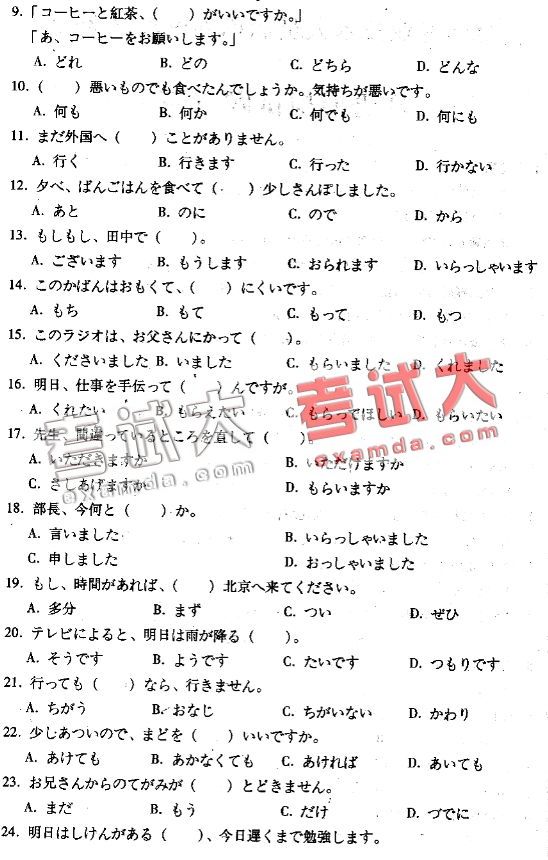 9.「コーヒーと紅茶、(　　)がいいですか。」
「あ、コーヒーをお願いします。」
A. どれ　B. どの　C. どちら　D. どんな
10.(　　)悪いものでも食べたんでしょうか。気持ちが悪いです。
A. 何も　B. 何か　C. 何でも　D. 何にも
11. まだ外国へ(　　)ことがありません。
A. 行く　B. 行きます　C. 行った　D. 行かない
12. 夕べ、ばんごはんを食べて(　　)少しさんぽしました。
A. あと　B. のに　C. ので　D. から
13. もしもし、田中で(　　)。
A. ございます　B. もうします　C. おられます　D. いらっしゃいます
14. このかばんはおもくて、(　　)にくいです。
A. もち　B. もて　C. もって　D. もつ
15. このラジオは、お父さんにかって(　　)。
A. くださいました　B. いました　C. もらいました　D. くれました
16. 明日、仕事を手伝って(　　)んですが。
A. くれたい　B. もらえたい　C. もらってほしい　D. もらいたい
17. 先生、間違っているところを直して(　　)。
A. いただきますか　B. いただけますか
C. さしあげますか　D. もらいますか
18. 部長、今何と(　　)か。
A. 言いました　B. いらっしゃいました
C. 申しました　D. おっしゃいました
19. もし、時間があれば、(　　)北京へ来てください。
A. 多分　B. まず　C. つい　D. ぜひ
20. テレビによると、明日は雨が降る(　　)。
A. そうです　B. ようです　C. たいです　D. つもりです
21. 行っても(　　)なら、行きません。
A. ちがう　B. おなじ　C. ちがいない　D. かわり
22. 少しあついので、まどを(　　)いいですか。
A. あけても　B. あかなくても　C. あければ　D. あいても
23. お兄さんからのてがみが(　　)とどきません。
A. まだ　B. もう　C. だけ　D. づでに
24. 明日はしけんがある(　　)、今日遅くまで勉強します。
考试大
examda.com
考试大
examda.com